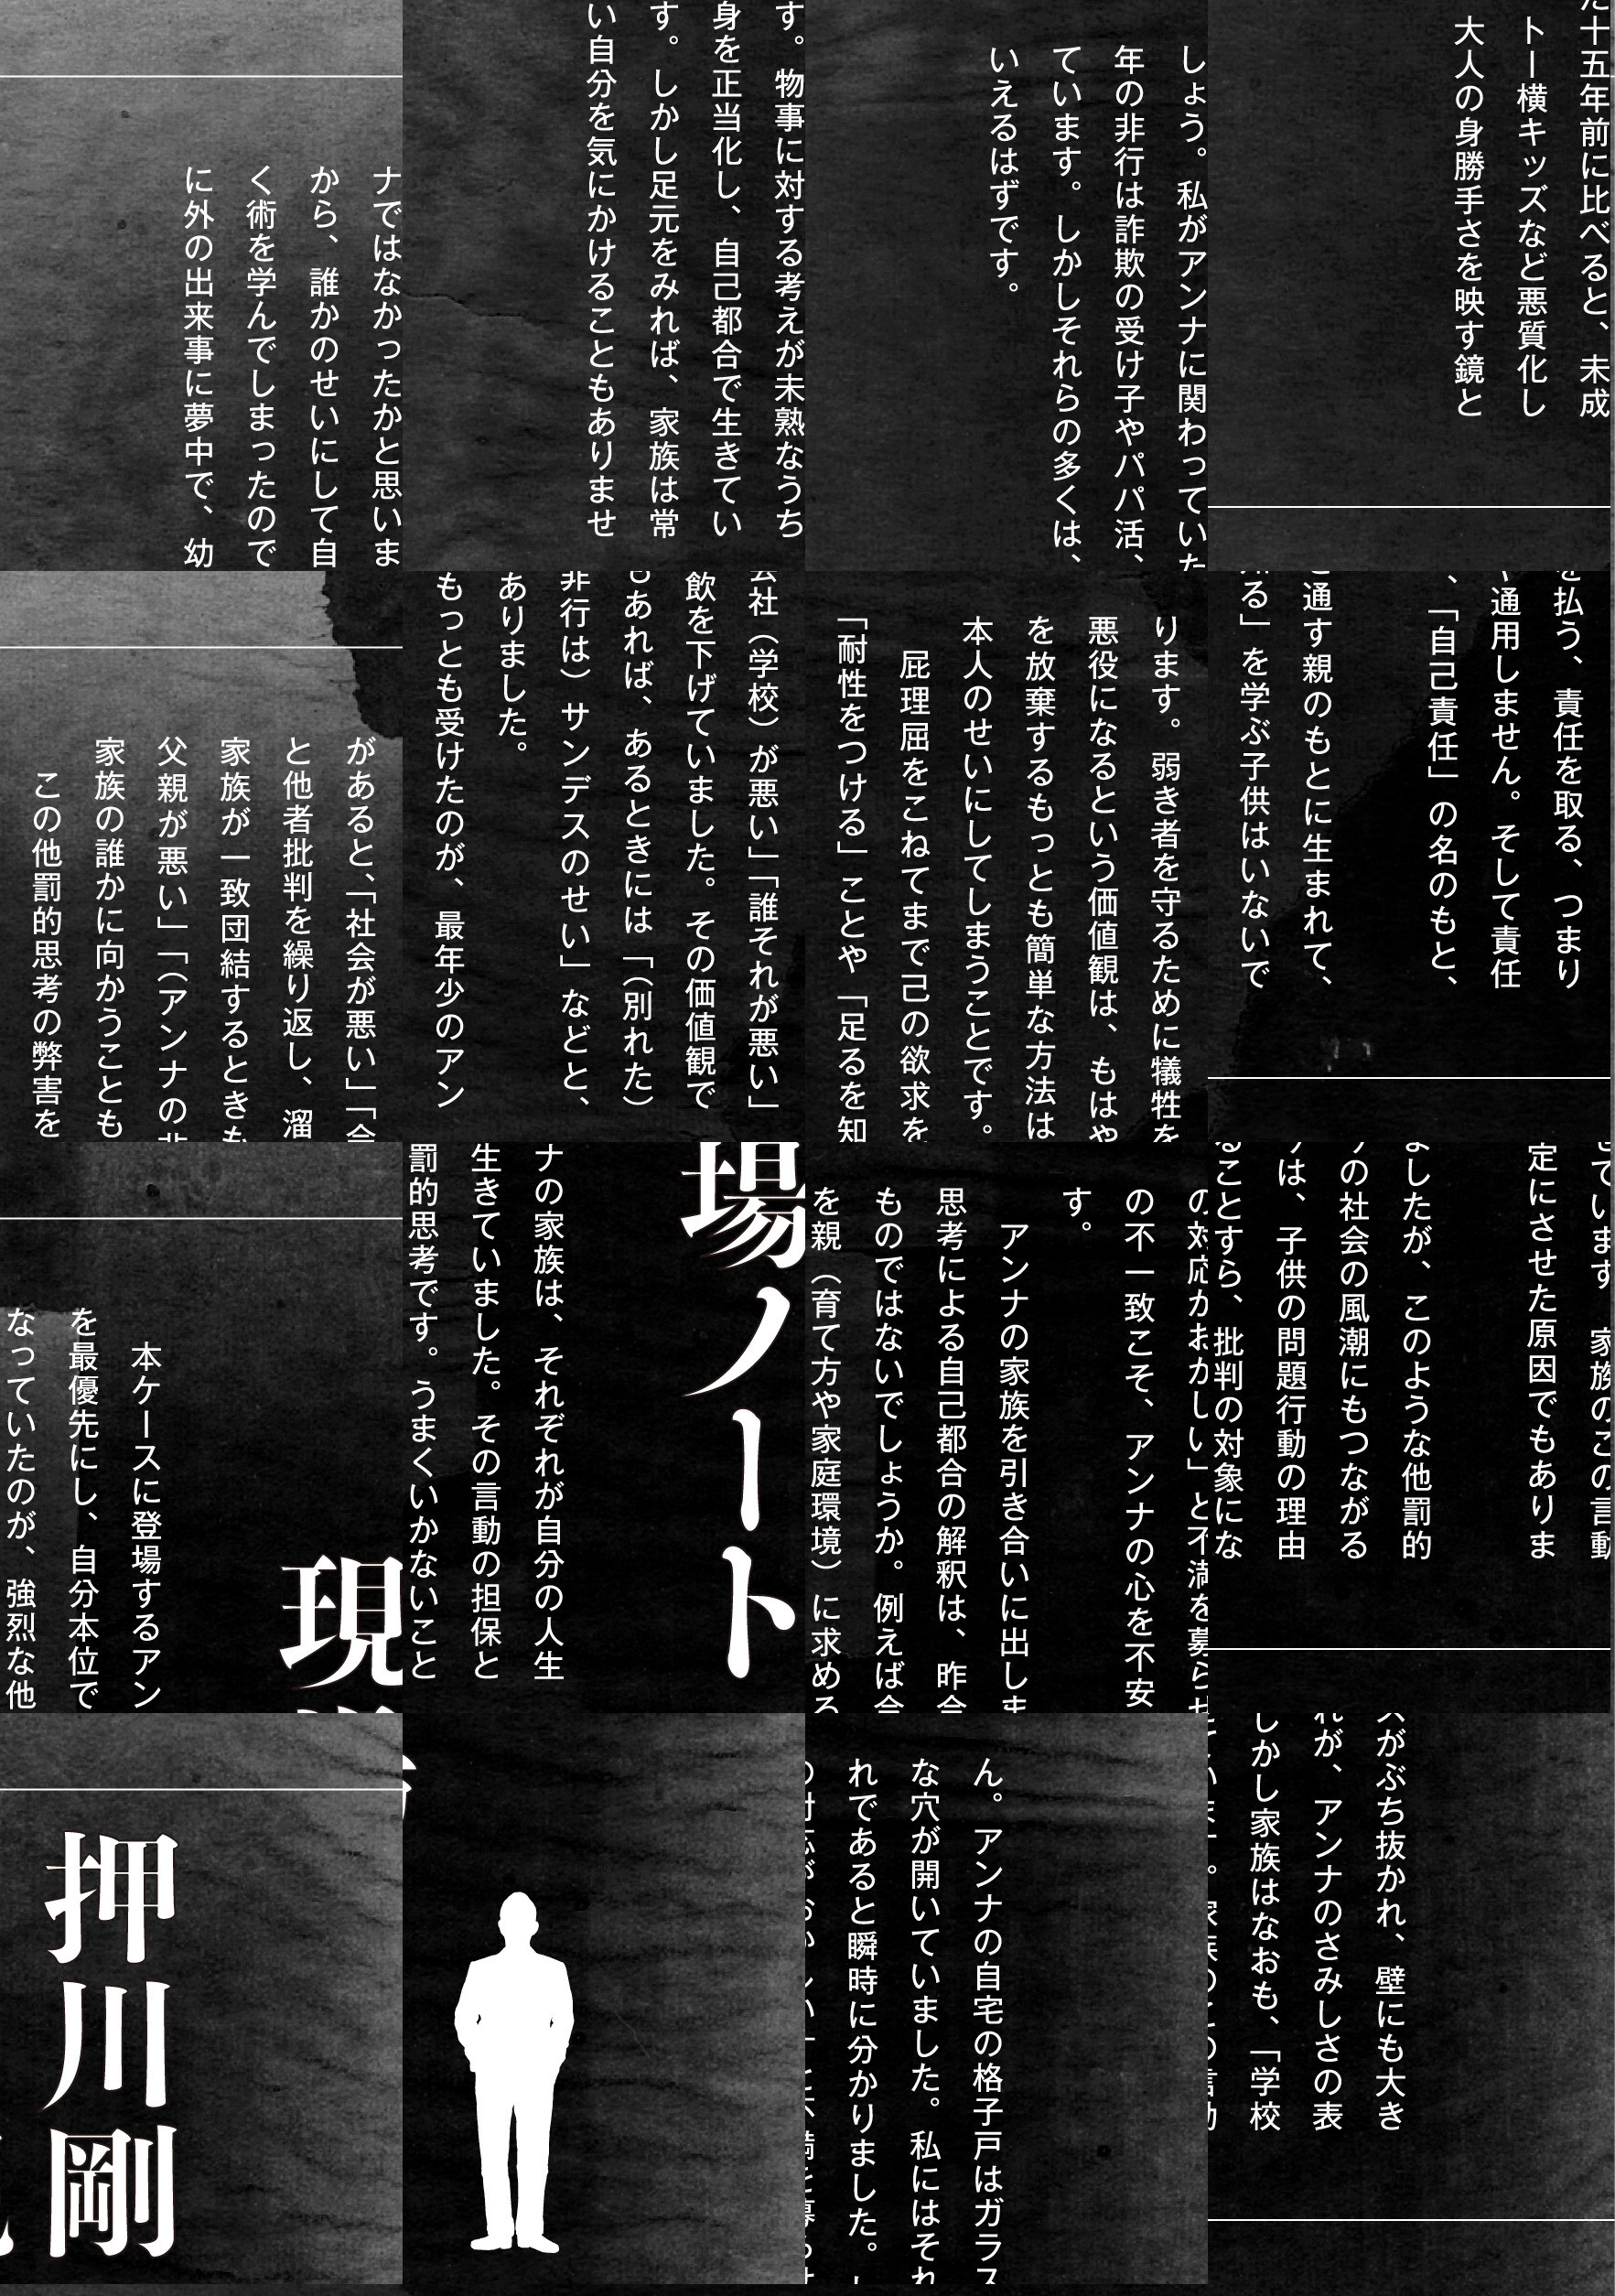 ナではなかったかと思いま
から、誰かのせいにして自
く術を学んでしまったので
に外の出来事に夢中で、幼
す。物事に対する考えが未熟なうち
身を正当化し、自己都合で生きてい
す。しかし足元をみれば、家族は常
い自分を気にかけることもありませ
しょう。私がアンナに関わっていた
年の非行は詐欺の受け子やパパ活、
ています。しかしそれらの多くは、
いえるはずです。
十五年前に比べると、未成
トー横キッズなど悪質化し
大人の身勝手さを映す鏡と
があると、「社会が悪い」「会
と他者批判を繰り返し、溜
家族が一致団結するときも
父親が悪い」「（アンナの非
家族の誰かに向かうことも
この他罰的思考の弊害を
会社（学校）が悪い」「誰それが悪い」
飲を下げていました。その価値観で
もあれば、あるときには「（別れた）
非行は）サンデスのせい」などと、
ありました。
もっとも受けたのが、最年少のアン
ります。弱き者を守るために犠牲を
悪役になるという価値観は、もはや
を放棄するもっとも簡単な方法は
本人のせいにしてしまうことです。
屁理屈をこねてまで己の欲求を
「耐性をつける」ことや「足るを知
を払う、責任を取る、つまり
や通用しません。そして責任
、「自己責任」の名のもと、
通す親のもとに生まれて、
る」を学ぶ子供はいないで
現
本ケースに登場するアン
を最優先にし、自分本位で
なっていたのが、強烈な他
場ノート
ナの家族は、それぞれが自分の人生
生きていました。その言動の担保と
罰的思考です。うまくいかないこと
の対応がおかしい」と不満を募らせ
の不一致こそ、アンナの心を不安
す。
アンナの家族を引き合いに出しま
思考による自己都合の解釈は、昨今
ものではないでしょうか。例えば今
を親（育て方や家庭環境）に求める
ています。家族のこの言動
定にさせた原因でもありま
ましたが、このような他罰的
の社会の風潮にもつながる
は、子供の問題行動の理由
ることすら、批判の対象にな
押川剛
ん。アンナの自宅の格子戸はガラス
な穴が開いていました。私にはそれ
れであると瞬時に分かりました。し
の対応がおかしい」と不満を募らせ
スがぶち抜かれ、壁にも大き
れが、アンナのさみしさの表
しかし家族はなおも、「学校